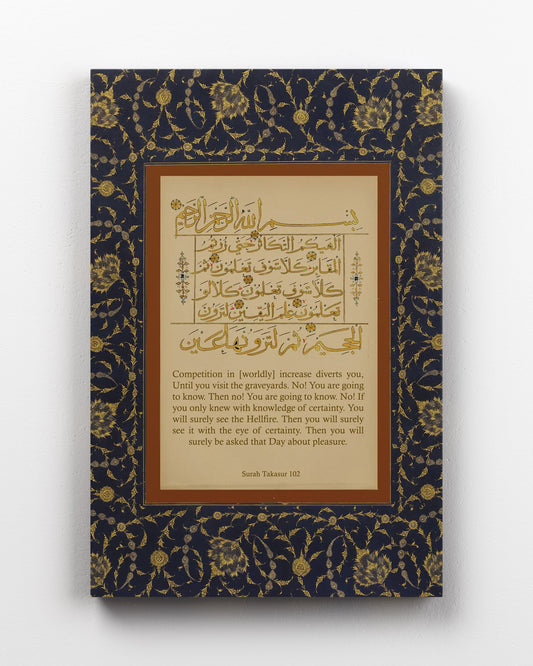 بسم الله الرحمن الرحيم
ألهىكم التكاثر حتى زرتم
المقابر كلا سوف تعلمون ثم
كلا سوف تعلمون كلا لو
تعلمون علم اليقين لترون
الجحيم ثم لترونها عين
Competition in [worldly] increase diverts you,
Until you visit the graveyards. No! You are going
to know. Then no! You are going to know. No! If
you only knew with knowledge of certainty. You
will surely see the Hellfire. Then you will surely
see it with the eye of certainty. Then you will
surely be asked that Day about pleasure.
Surah Takasur 102